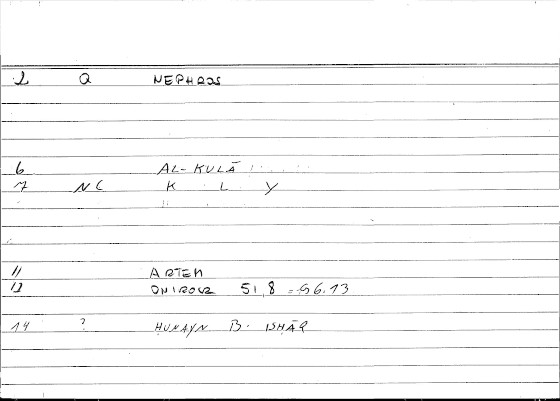 2 Q NEPHROS
6 AL-KULĀ
7 NC K L Y
11 ARTEM
12 ONIROCR 51,8 = 56.13
14 ? HUNAYN B. ISHĀQ